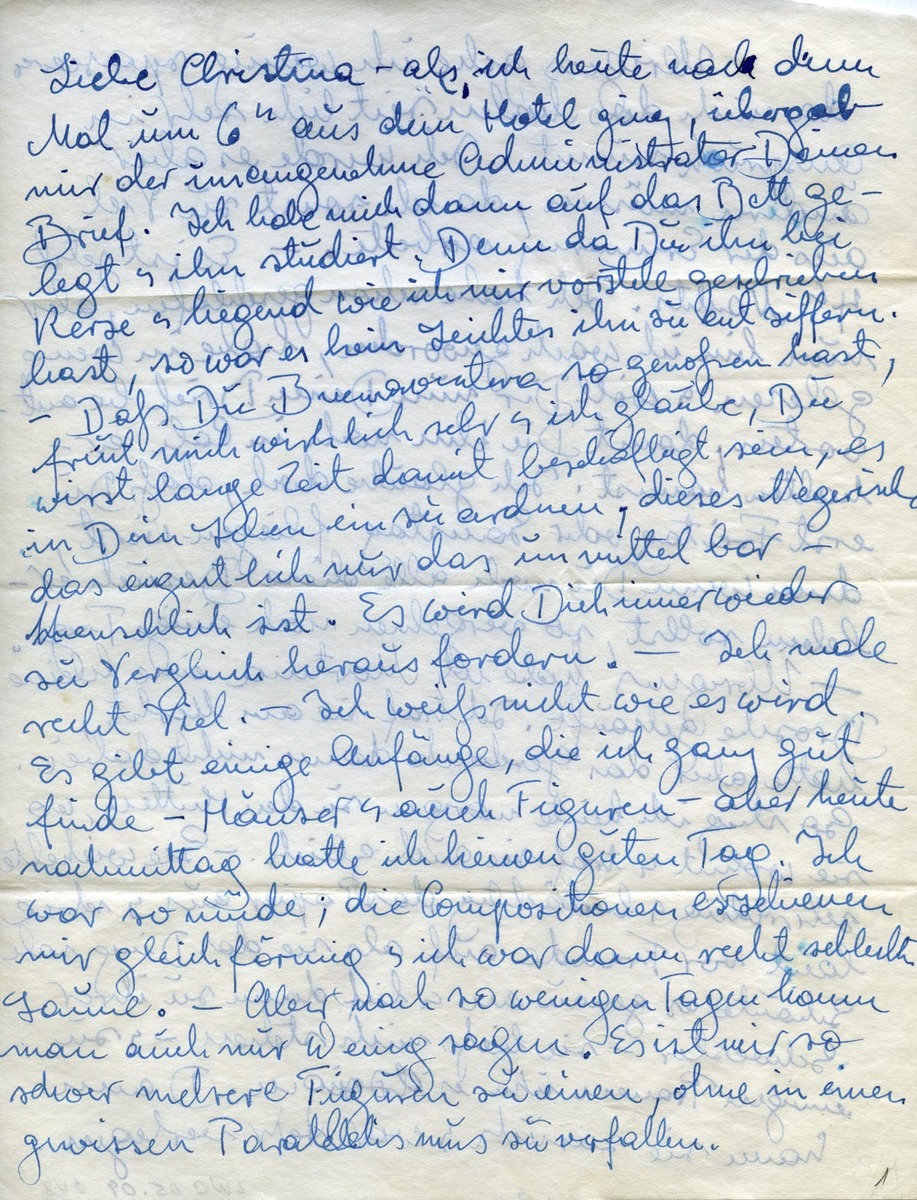 Liebe Christina – als ich heute nach dem
Mal um 6 h aus dem Hotel ging, übergab
mir der unangenehme Administrator Deinen
Brief. Ich habe mich dann auf das Bett ge-
legt u ihn studiert. Denn da Du ihn bei
Kerze u liegend wie ich mir vorstelle geschrieben
hast, so war es kein Leichtes ihn zu entziffern.
– Daß Du Buenaventura so genoßen hast,
freut mich wirklich sehr u ich glaube, Du
wirst lange Zeit damit beschäftigt sein, es
in Dein Leben ein zu ordnen, dieses Negerische
das eigentlich nur das unmittelbar –
Menschlich ist. Es wird Dich immer wieder
zu Vergleich herausfordern. – Ich male
recht viel. – Ich weiß nicht wie es wird.
Es gibt einige Anfänge, die ich ganz gut
finde – Häuser u auch Figuren – aber heute
nachmittag hatte ich keinen guten Tag. Ich
war so müde; die Compositionen erschienen
mir gleichförmig u ich war dann recht schlecht
Laune. – Aber nach so wenigen Tagen kann
man auch nur wenig sagen. Es ist mir so
schwer mehrere Figuren zu einen, ohne in einen
gewissen Parallelismus zu verfallen.
1